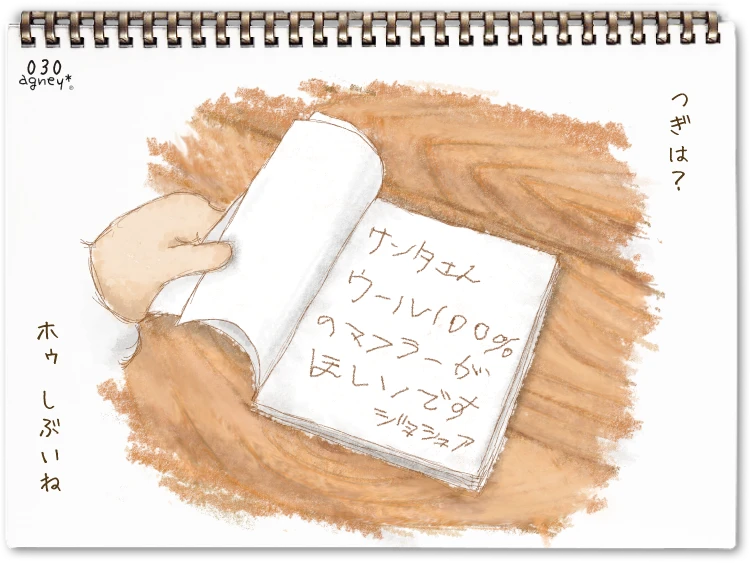 030
agney*
つぎは?
サンタさん
ウール100%
のマフラーが
ほしいです
ジョシュア
ホゥ しぶいね